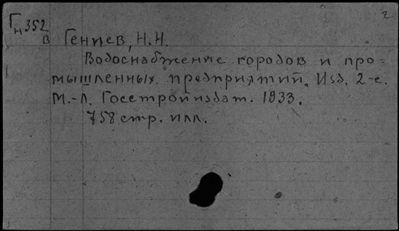 Гн352
в Гениев, Н.Н.
2
Водоснабжение городов и про-
мышленных предприятий. Изд. 2-е.
М.-Л. Госстройиздат. 1933.
758 стр. илл.